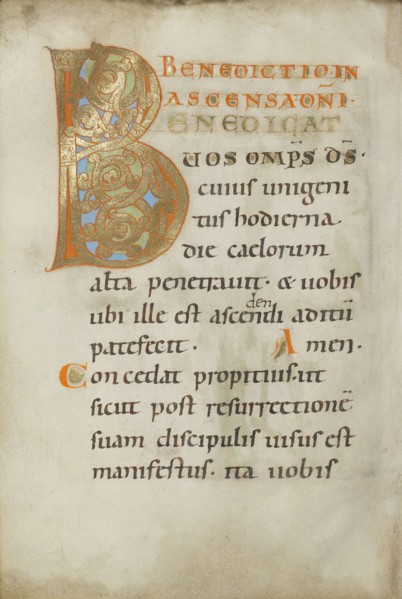 BENEDICTIO IN
ASCENSA DÑI·
BENEDICAT
UOS OMP̄S D̄S·
cuius unigeni
tus hodierna
die caelorum
alta penetrauit· & uobis
ubi ille est ascendendi aditū
patefecit· Amen·
Concedat propitius· ut
sicut post resurrectionē
suam discipulis uisus est
manifestus· ita uobis